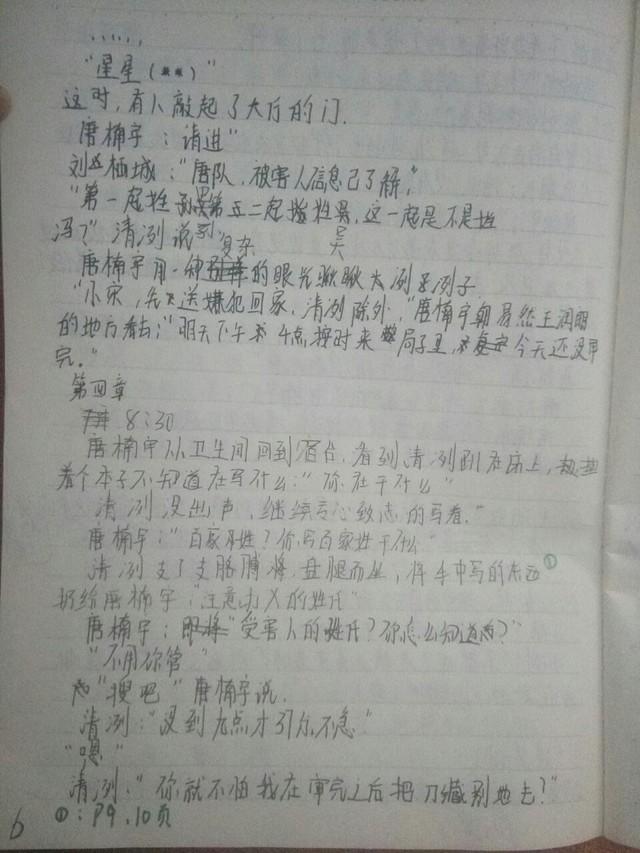 ……
"星星（）"
这时，有人敲起了大厅的门.
唐楠宇：请进"
刘栖城："唐队，被害人信息已了解，"
"第一起姓吴第二起姓,这一起是不是姓
冯？"清冽说到 吴
唐楠宇用一种复杂的眼光瞅瞅大冽子.
"小宋，先送嫌犯回家，清冽除外，"唐楠宇朝易然王润明
的地方看去："明天下午4点,按时来局子里,今天还没审
完."
第四章
8:30
唐楠宇从卫生间回到宿台,看到清冽趴在床上,
着个本子不知道在写什么："你在干什么"
清冽没出声,继续专心致志的写着."
唐楠宇："百家姓？你写百家姓干什么"
清冽支了支胳膊将,盘腿而坐，将手中写的东西①
扔给唐楠宇：注意打X的姓氏"
唐楠宇："受害人的姓氏？你怎么知道的？"
"不用你管"
"搜吧"唐楠宇说.
清冽："没到九点才引尔,不急"
"嗯"
清冽："你就不怕我在审完之后把刀藏别地去？"
①：P9、10页
6